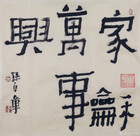 家龢
萬事
興